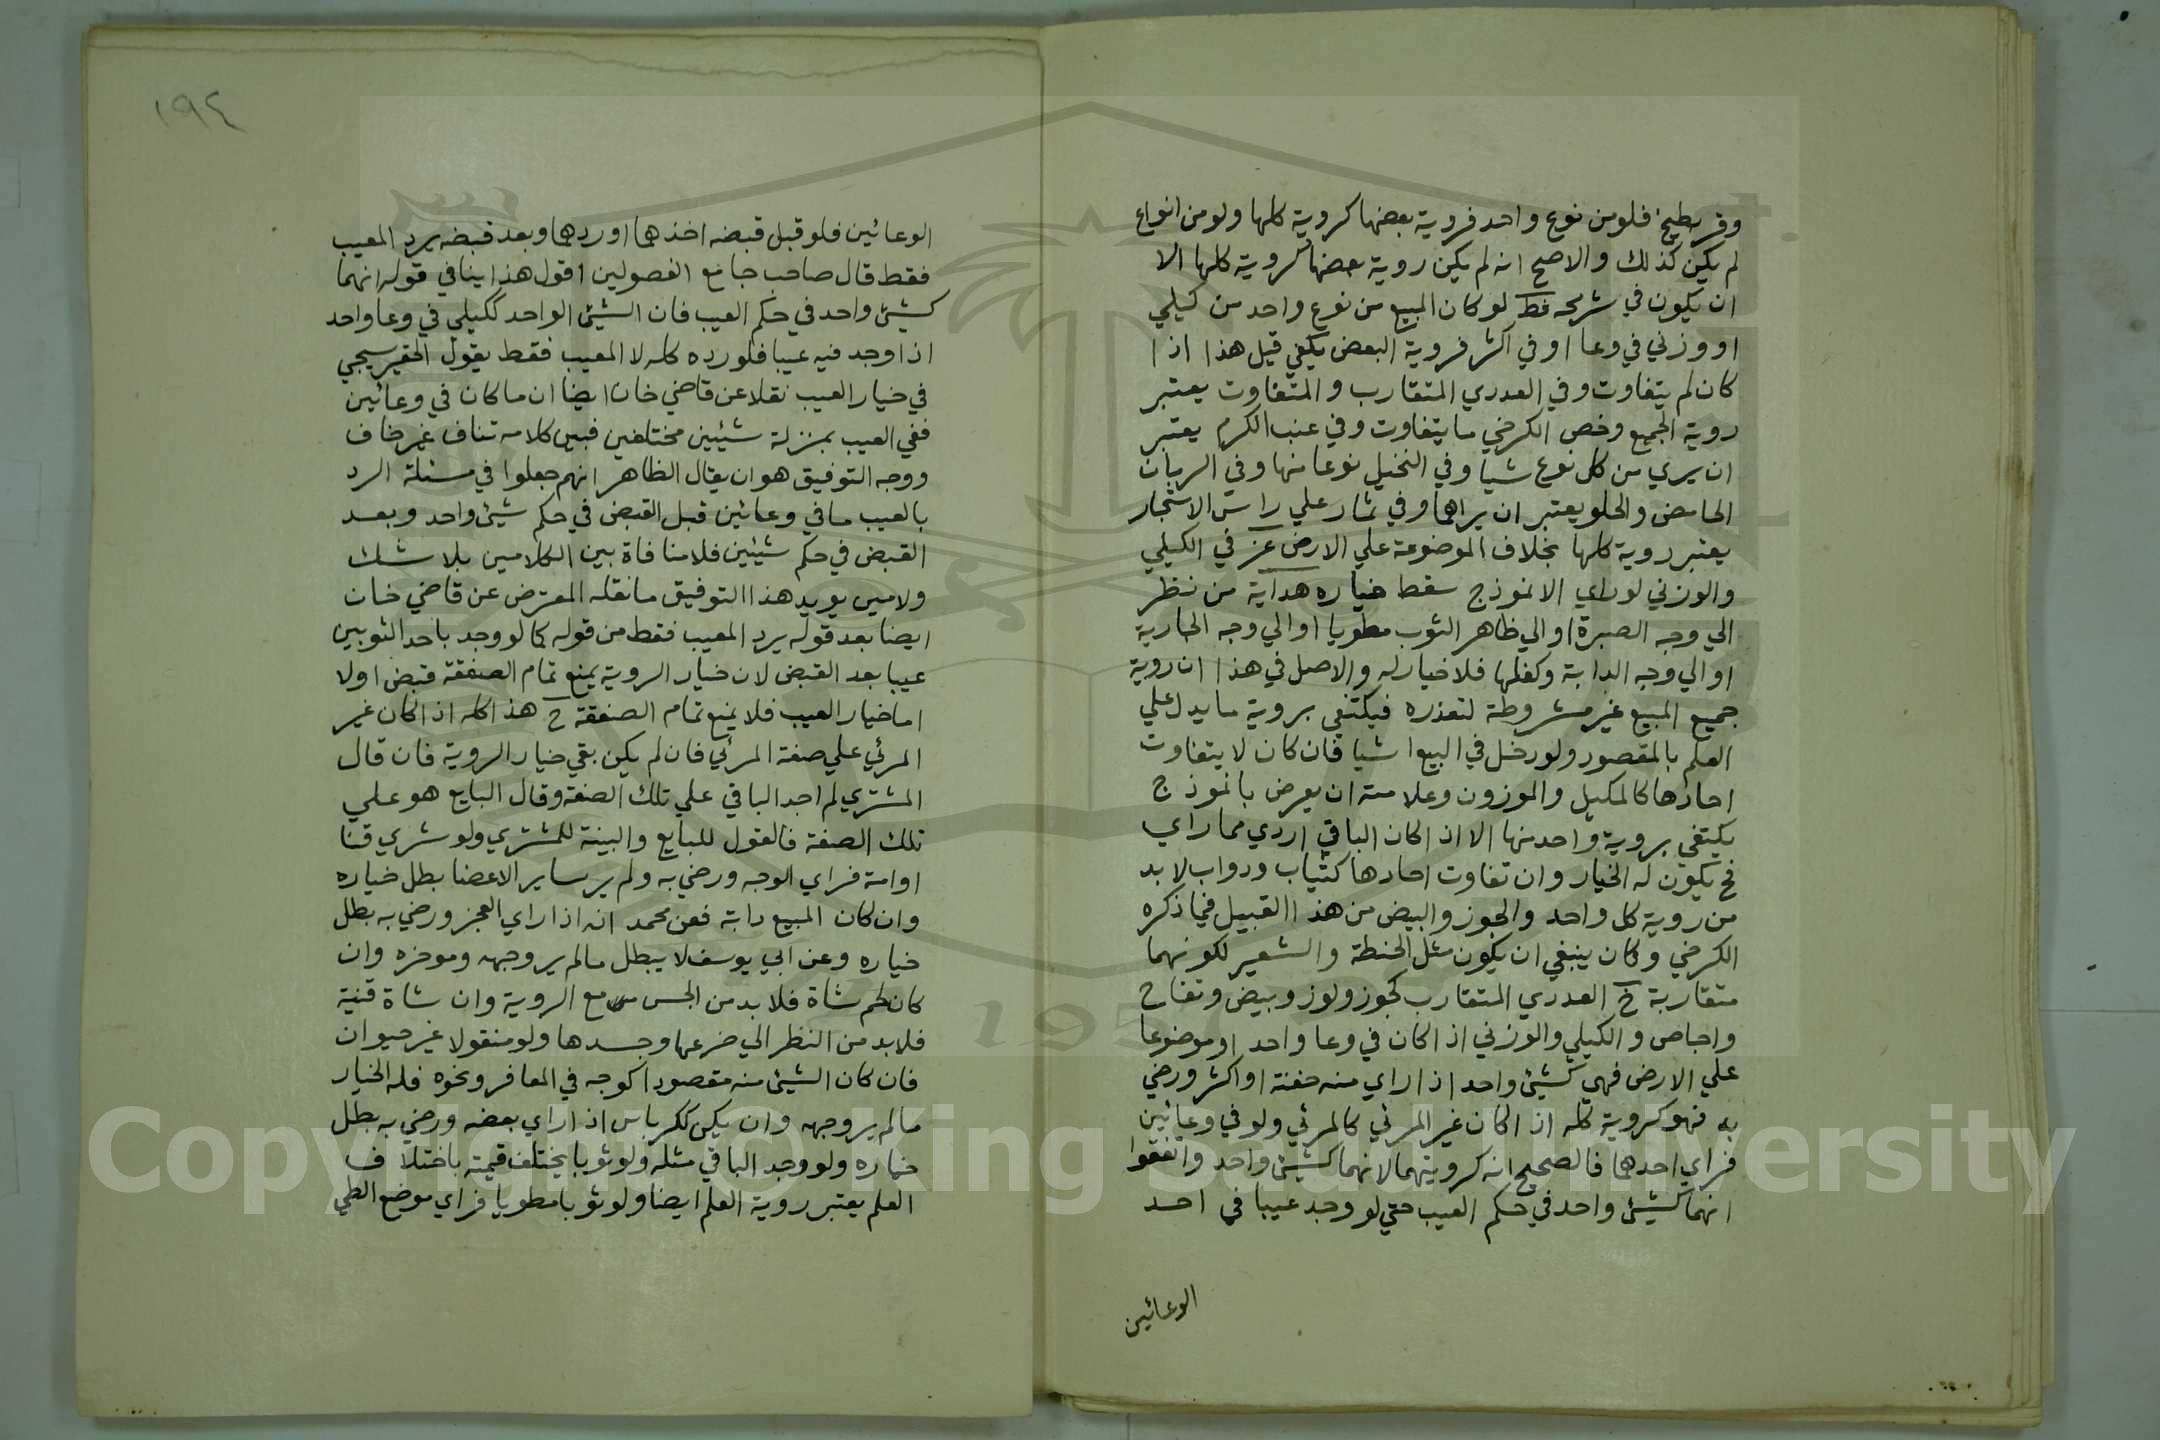 وقر بطيخ فلو من نوع واحد فروية بعضها كروية كلها ولو من انواع
لم يكن كذلك والاصح انه لم يكن روية بعضها كروية كلها الا
ان يكون في شريحه فظ لو كان المبيع من نوع واحد من كيلي
او وزني في وعا او في اكثر فروية البعض يكفي قيل هذا اذا
كان لم يتفاوت وفي العددي المتقارب والمتفاوت يعتبر
روية الجميع وخص الكرخي ما يتفاوت وفي عنب الكرم يعتبر
ان يري من كل نوع شيا وفي النخيل نوعا منها وفي الرمان
الحامض والحلو يعتبر ان يراهما وفي ثمار علي راس الاشجار
يعتبر روية كلها بخلاف الموضوعة علي الارض عز في الكيلي
والوزني لو راي الانموذج سقط خياره هداية من نظر
الي وجه الصبرة او الي ظاهر الثوب مطويا او الي وجه الجارية
او الي وجه الدابة وكفلها فلا خيار له والاصل في هذا ان روية
جميع المبيع غير مشروطة لتعذره فيكتفي بروية ما يدل علي
العلم بالمقصود ولو دخل في البيع اشيا فان كان لا يتفاوت
احادها كالمكيل والموزون وعلامته ان يعرض بانموذج
يكتفي بروية واحد منها الا اذا كان الباقي اردي مما راي
فح يكون له الخيار وان تفاوت احادها كثياب ودواب لا بد
من روية كل واحد والجوز والبيض من هذا القبيل فيما ذكره
الكرخي وكان ينبغي ان يكون مثل الحنطة والشعير لكونهما
متقاربة خ العددي المتقارب كجوز ولوز وبيض وتفاح
واجاص والكيلي والوزني اذا كان في وعا واحد او موضوعا
علي الارض فهي كشئ واحد اذا راي منه حفنة او اكثر ورضي
به فهو كروية كله اذا كان غير المرئي كالمرئي ولو في وعائين
فراي احدهما فالصحيح انه كرويتهما لانهما كشئ واحد واتفقوا
انهما كشئ واحد في حكم العيب حتي لو وجد عيبا في احد
الوعائين
١٩٤
الوعائين فلو قبل قبضه اخذهما او ردهما وبعد قبضه يرد المعيب
فقط قال صاحب جامع الفصولين اقول هذا ينافي قوله انهما
كشئ واحد في حكم العيب فان الشئ الواحد ككيلي في وعا واحد
اذا وجد فيه عيبا فلو رده كله لا المعيب فقط يقول الحقير سيجي
في خيار العيب نقلا عن قاضي خان ايضا ان ما كان في وعائين
ففي العيب بمنزلة شيئين مختلفين فبين كلامه تناف غير خاف
ووجه التوفيق هو ان يقال الظاهر انهم جعلوا في مسئلة الرد
بالعيب ما في وعائين قبل القبض في حكم شئ واحد وبعد
القبض في حكم شيئين فلا منافاة بين الكلامين بلا شك
ولا مين يويد هذا التوفيق ما نقله المعترض عن قاضي خان
ايضا بعد قوله يرد المعيب فقط من قوله كما لو وجد باحد الثوبين
عيبا بعد القبض لان خيار الروية يمنع تمام الصفقة قبض اولا
اما خيار العيب فلا يمنع تمام الصفقة خ هذا كله اذا كان غير
المرئي علي صفة المرئي فان لم يكن بقي خيار الروية فان قال
المشتري لم اجد الباقي علي تلك الصفة وقال البايع هو علي
تلك الصفة فالقول للبايع والبينة للمشتري ولو شري قنا
او امة فراي الوجه ورضي به ولم ير ساير الاعضا بطل خياره
وان كان المبيع دابة فعن محمد انه اذا راي العجز ورضي به بطل
خياره وعن ابي يوسف لا يبطل ما لم ير وجهه وموخره وان
كان لحم شاة فلا بد من الجس مع الروية وان شاة قنية
فلا بد من النظر الي ضرعها وجسدها ولو منقولا غير حيوان
فان كان الشئ منه مقصودا كوجه في المعافر ونحوه فله الخيار
ما لم ير وجهه وان يكن ككرباس اذا راي بعضه ورضي به بطل
خياره ولو وجد الباقي مثله ولو ثوبا يختلف قيمته باختلاف
العلم يعتبر روية العلم ايضا ولو ثوبا مطويا فراي موضع الطي
Copyright © King Saud University
1957